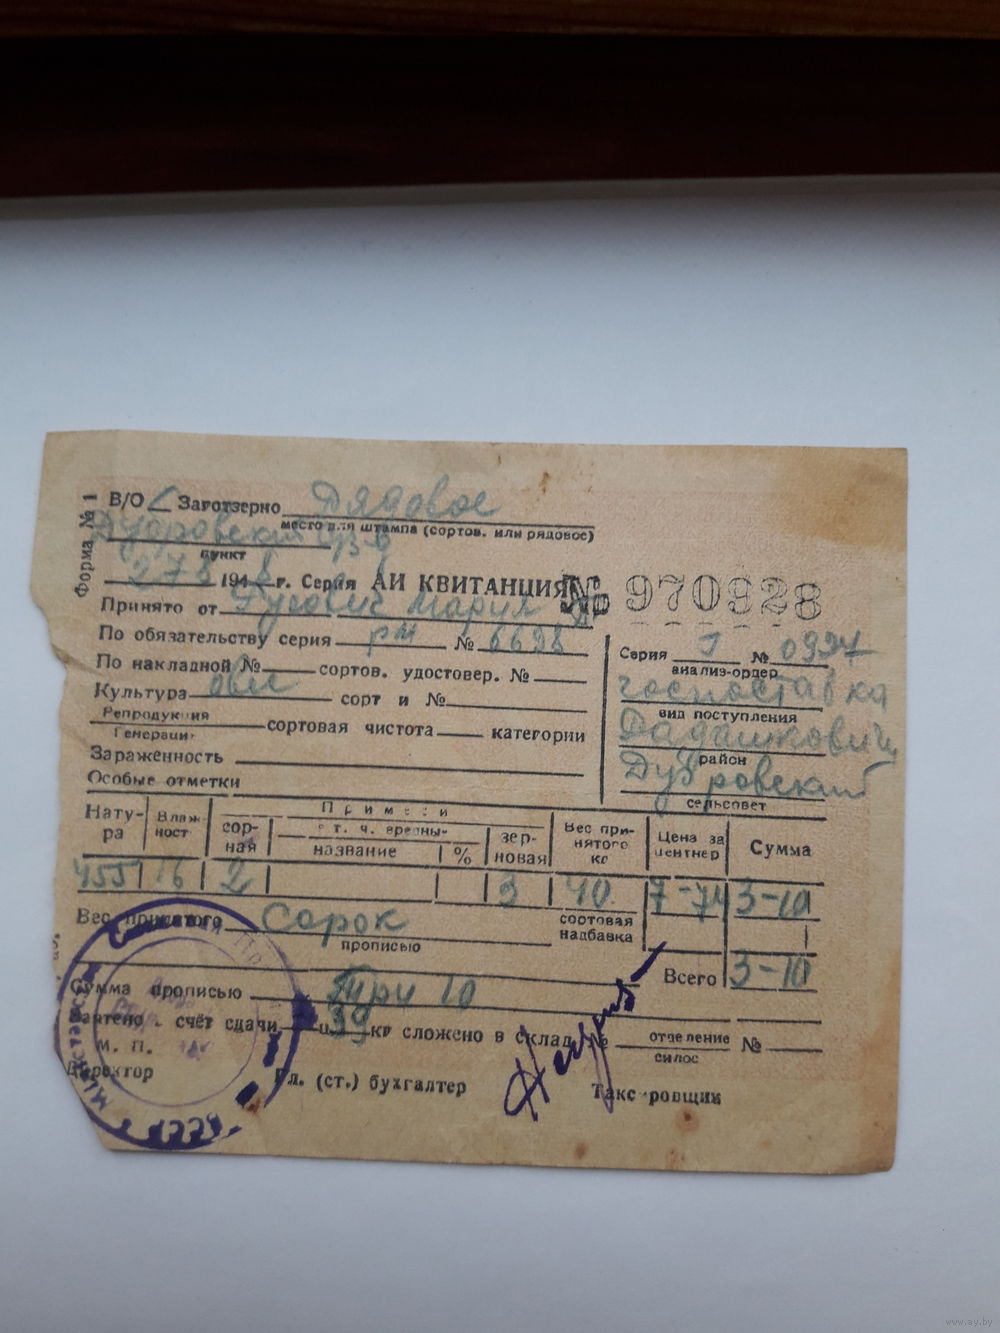 Форма № 1
В/О „Заготзерно Рядовое
место для штампа (сортов. или рядовое)
Дубровский
пункт
27 8 194 г. Серия АИ КВИТАНЦИЯ № 970928
Принято от Мария
По обязательству серия рм № 6698
По накладной № сортов. удостовер. №
Культура овес сорт и №
Репродукция
Генерация сортовая чистота категории
Зараженность
Особые отметки
Серия № 0997
анализ-ордер
госпоставка
вид поступления
Радашковичи
район
Дубровский
сельсовет
Натура
Влажность
Примеси
сорная
в т. ч. вредные
название
%
зерновая
Вес принятого кг
Цена за центнер
Сумма
455 16 2 3 40 7-74 3-10
Вес принятого Сорок
прописью
сортовая надбавка
Всего 3-10
Сумма прописью Три 10
Зачтено в счёт сдачи ц 39 кг сложено в склад № отделение №
силос
М. П.
Директор
Гл. (ст.) бухгалтер
Таксировщик
СССР
www.ay.by